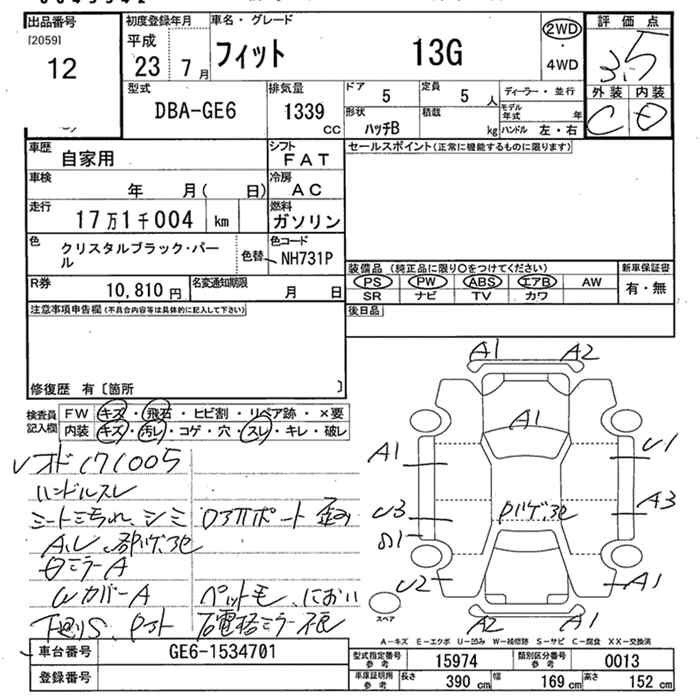 出品番号
[2059]
12
初度登録年月
平成
23年 7月
車名・グレード
フィット 13G
2WD
・
4WD
評価点
3.5
型式
DBA-GE6
排気量
1339
CC
ドア
5
定員
5 人
形状
ハッチB
積載
kg
ディーラー・並行
モデル年式 年
ハンドル 左・右
外装 内装
C D
車歴
自家用
シフト
FAT
セールスポイント(正常に機能するものに限ります)
車検
年 月( 日)
冷房
AC
走行
17万1千004 km
燃料
ガソリン
色
クリスタルブラック・パール
色替
色コード
NH731P
R券
10,810円
名変通知期限
月 日
装備品 (純正品に限り○をつけてください)
PS PW ABS エアB AW
SR ナビ TV カワ
新車保証書
有・無
注意事項申告欄(不具合内容等は具体的に記入して下さい)
後日品
修復歴 有〔箇所 〕
検査員
記入欄
FW キズ・飛石・ヒビ割・リペア跡・×要
内装 キズ・汚レ・コゲ・穴・スレ・キレ・破レ
171005
ハンドルスレ
シートヨゴレ、シミ
ミラーA
WカバーA
ペットモー、におい
A1 A2
A1
A1 U1
U3 A3
U2 A1
A2 A1
スペア
A-キズ E-エクボ U-凹み W-補修跡 S-サビ C-腐食 XX-交換済
車台番号
GE6-1534701
登録番号
型式指定番号
参考
15974
類別区分番号
参考
0013
車庫証明用
参考
長さ
390 cm
幅
169 cm
高さ
152 cm